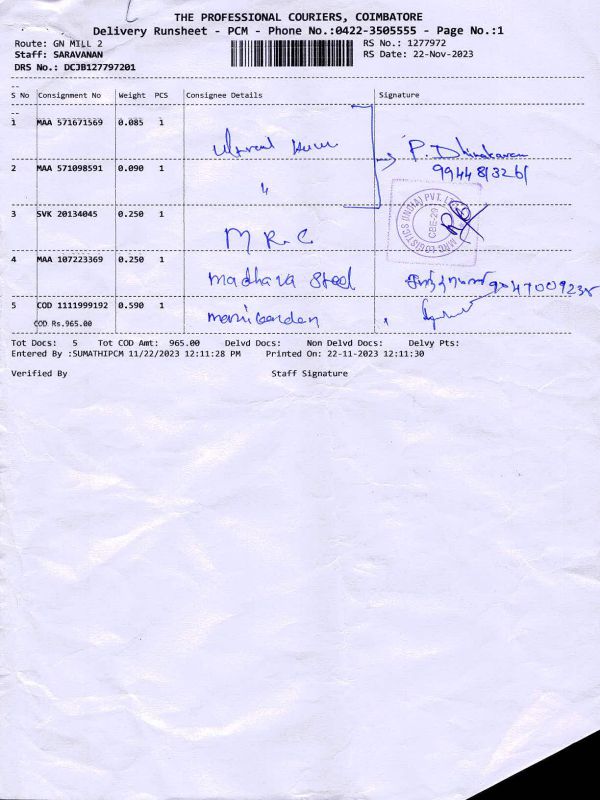 THE PROFESSIONAL COURIERS, COIMBATORE
Delivery Runsheet - PCM - Phone No.:0422-3505555 - Page No.:1
Route: GN MILL 2 RS No.: 1277972
Staff: SARAVANAN RS Date: 22-Nov-2023
DRS No.: DCJB127797201
S No Consignment No Weight PCS Consignee Details Signature
1 MAA 571671569 0.085 1
P. Dhinakaran
2 MAA 571098591 0.090 1 "
3 SVK 20134045 0.250 1
MRC
4 MAA 107223369 0.250 1
Madhava Steel
5 COD 1111999192 0.590 1
COD Rs.965.00 manikandan
Tot Docs: 5 Tot COD Amt: 965.00 Delvd Docs: Non Delvd Docs: Delvy Pts:
Entered By :SUMATHIPCM 11/22/2023 12:11:28 PM Printed On: 22-11-2023 12:11:30
Verified By Staff Signature